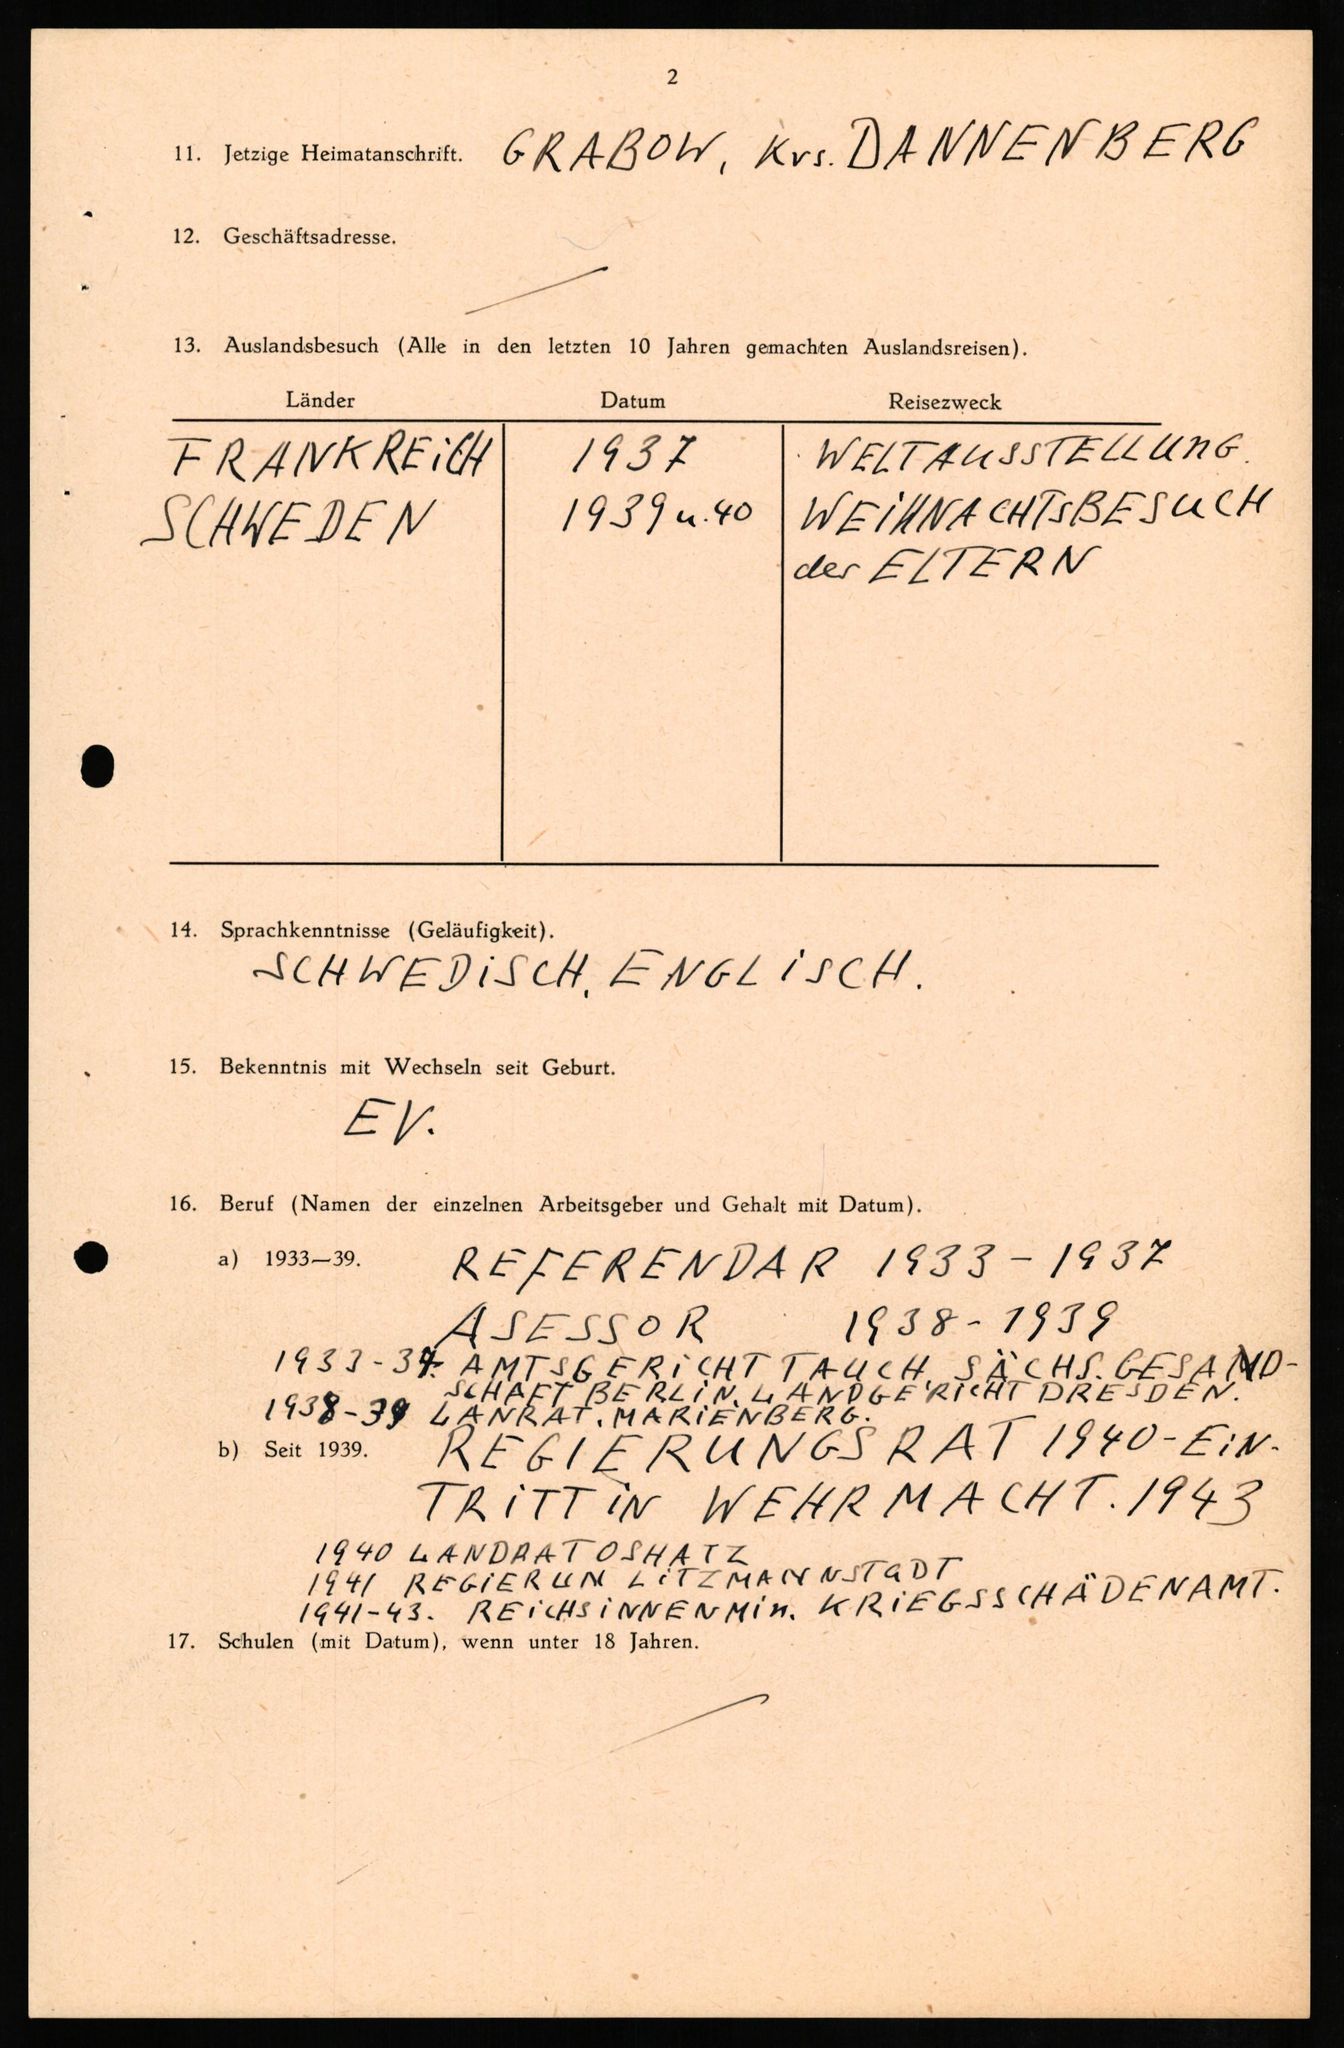 2
11. Jetzige Heimatanschrift. GRABOW, Krs. DANNENBERG
12. Geschäftsadresse.
13. Auslandsbesuch (Alle in den letzten 10 Jahren gemachten Auslandsreisen).
Länder Datum Reisezweck
FRANKREiCH 1937 WELTAUSSTELLUNG.
SCHWEDEN 1939 u. 40 WEiHNACHTSBESUCH
der ELTERN
14. Sprachkenntnisse (Geläufigkeit).
SCHWEDiSCH, ENGLiSCH.
15. Bekenntnis mit Wechseln seit Geburt.
EV.
16. Beruf (Namen der einzelnen Arbeitsgeber und Gehalt mit Datum).
a) 1933—39. REFERENDAR 1933 - 1937
ASESSOR 1938 - 1939
1933-37. AMTSGERiCHT TAUCH, SÄCHS. GESAND-
SCHAFT BERLiN, LANDGERiCHT DRESDEN.
1938-39 LANRAT. MARiENBERG.
b) Seit 1939. REGIERUNGSRAT 1940 - EiN-
TRiTT iN WEHRMACHT. 1943
1940 LANDRAT OSHATZ
1941 REGiERUN LiTZMANNSTADT
1941-43. REiCHSiNNENMin. KRiEGSSCHÄDENAMT.
17. Schulen (mit Datum), wenn unter 18 Jahren.